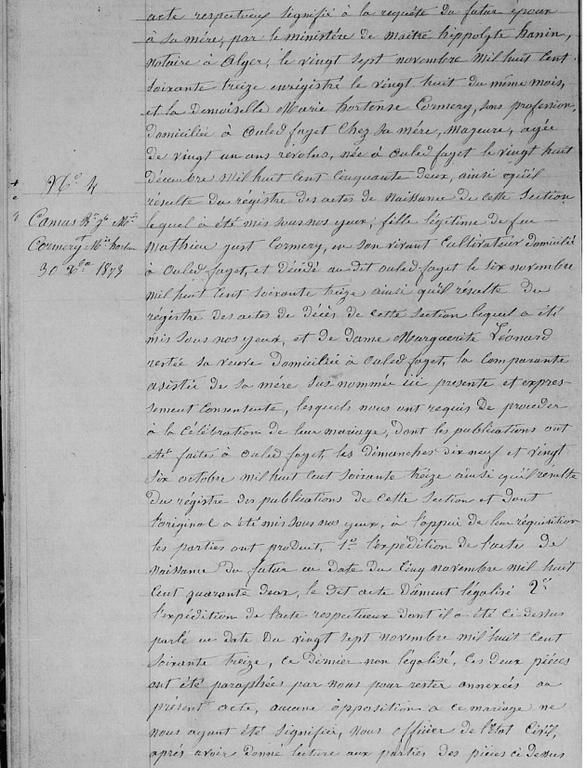 acte respectueux signifié à la requête du futur époux
à sa mère, par le ministère de maitre hippolyte hanin,
notaire à Alger, le vingt sept novembre mil huit cent
soixante treize enrégistré le vingt huit du même mois,
et la demoiselle Marie hortense Cormery, sans profession,
domiciliée à Ouled fayet chez sa mère, majeure, agée
de vingt un ans revolus, née à Ouled fayet le vingt huit
décembre mil huit cent cinquante deux, ainsi qu'il
résulte du registre des actes de Naissance de cette Section
lequel à été mis sous nos yeux, fille légitime de feu
Mathieu just Cormery, en son vivant Cultivateur domicilié
à Ouled fayet, et décédé au dit ouled fayet le six novembre
mil huit cent soixante treize ainsi qu'il résulte du
régistre des actes de décès de cette section lequel a été
mis sous nos yeux, et de dame Marguerite Léonard
restée sa veuve domiciliée à Ouled fayet, la comparante
assistée de sa mère sus nommée ici presente et expres-
sement consentente, lesquels nous ont requis de proceder
à la célébration de leur mariage, dont les publications ont
été faites à Ouled fayet, les dimanches dix neuf et vingt
six octobre mil huit cent soixante treize ainsi qu'il résulte
du régistre des publications de cette Section et dont
l'original a été mis sous nos yeux, à l'appui de leur réquisition
les parties ont produit, 1o l'expédition de l'acte de
Naissance du futur en date du Cinq novembre mil huit
cent quarante deux, le dit acte dûment légalisé 2o
l'expédition de l'acte respectueux dont il a été ci dessus
parlé en date du vingt sept novembre mil huit cent
soixante treize, ce dernier non légalisé, ces deux pièces
ont été paraphées par nous pour rester annexées au
présent acte, aucune opposition à ce mariage ne
nous ayant été signifiée, Nous officier de l'état Civil,
après avoir donné lecture aux parties des pièces ci dessus
No 4
Camus Bte Jles Mie
et
Cormery Mie horten
30 Xbre 1873